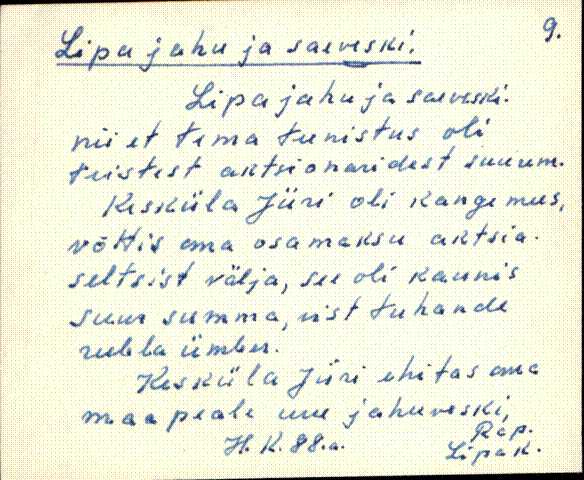 9.
Lipa jahu ja saeveski.
Lipa jahu ja saeveski.
nii et tema teenistus oli
teistest aktsionäridest suurem.
Kesküla Jüri oli kange mees,
võttis oma osamaksu aktsia-
seltsist välja, see oli kaunis
suur summa, vist tuhande
rubla ümber.
Kesküla Jüri ehitas oma
maa peale uue jahuveski,
H. K. 88. a.
Rap.
Lipa k.